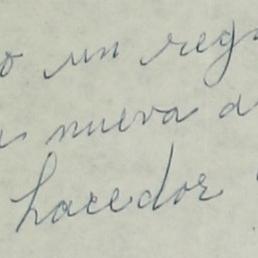 o un reg
nueva a
hacedor